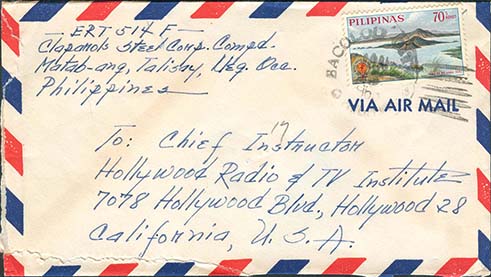 — ERT 514 F —
Clapanols Steel Corp. Compd.
Matab-ang, Talisay, Neg. Occ.
Philippines
PILIPINAS 70s
BACOLOD
VIA AIR MAIL
To: Chief Instructor
Hollywood Radio & TV Institute
7078 Hollywood Blvd., Hollywood 28
California, U. S. A.